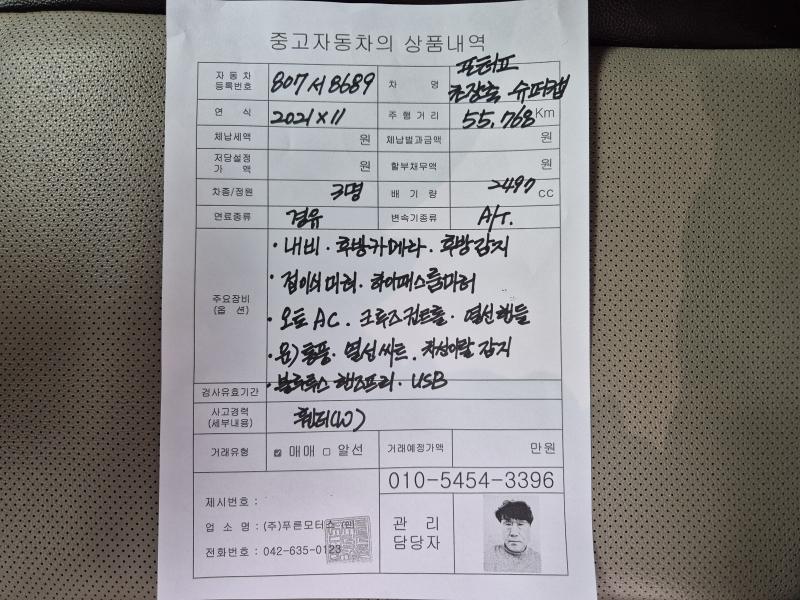 중고자동차의 상품내역
자 동 차 등록번호 807서8689 차 명 포터Ⅱ 초장축 슈퍼캡
연 식 2021 x 11 주 행 거 리 55,768 Km
체납세액 원 체납벌과금액 원
저당설정 가 액 원 할부채무액 원
차종/정원 3명 배 기 량 2497 CC
연료종류 경유 변속기종류 A/T.
주요장비 (옵 션)
· 내비 · 후방카메라 · 후방감지
· 접이식미러 · 하이패스룸미러
· 오토 AC . 크루즈컨트롤 · 열선핸들
· 운) 통풍 · 열선씨트 . 차선이탈 감지
· 블루투스 핸즈프리 · USB
검사유효기간
사고경력 (세부내용) 휀다(W)
거래유형 ☑ 매매 □ 알선 거래예정가액 만원
010-5454-3396
제시번호 :
업 소 명 : (주)푸른모터스
전화번호 : 042-635-0123
관 리 담당자